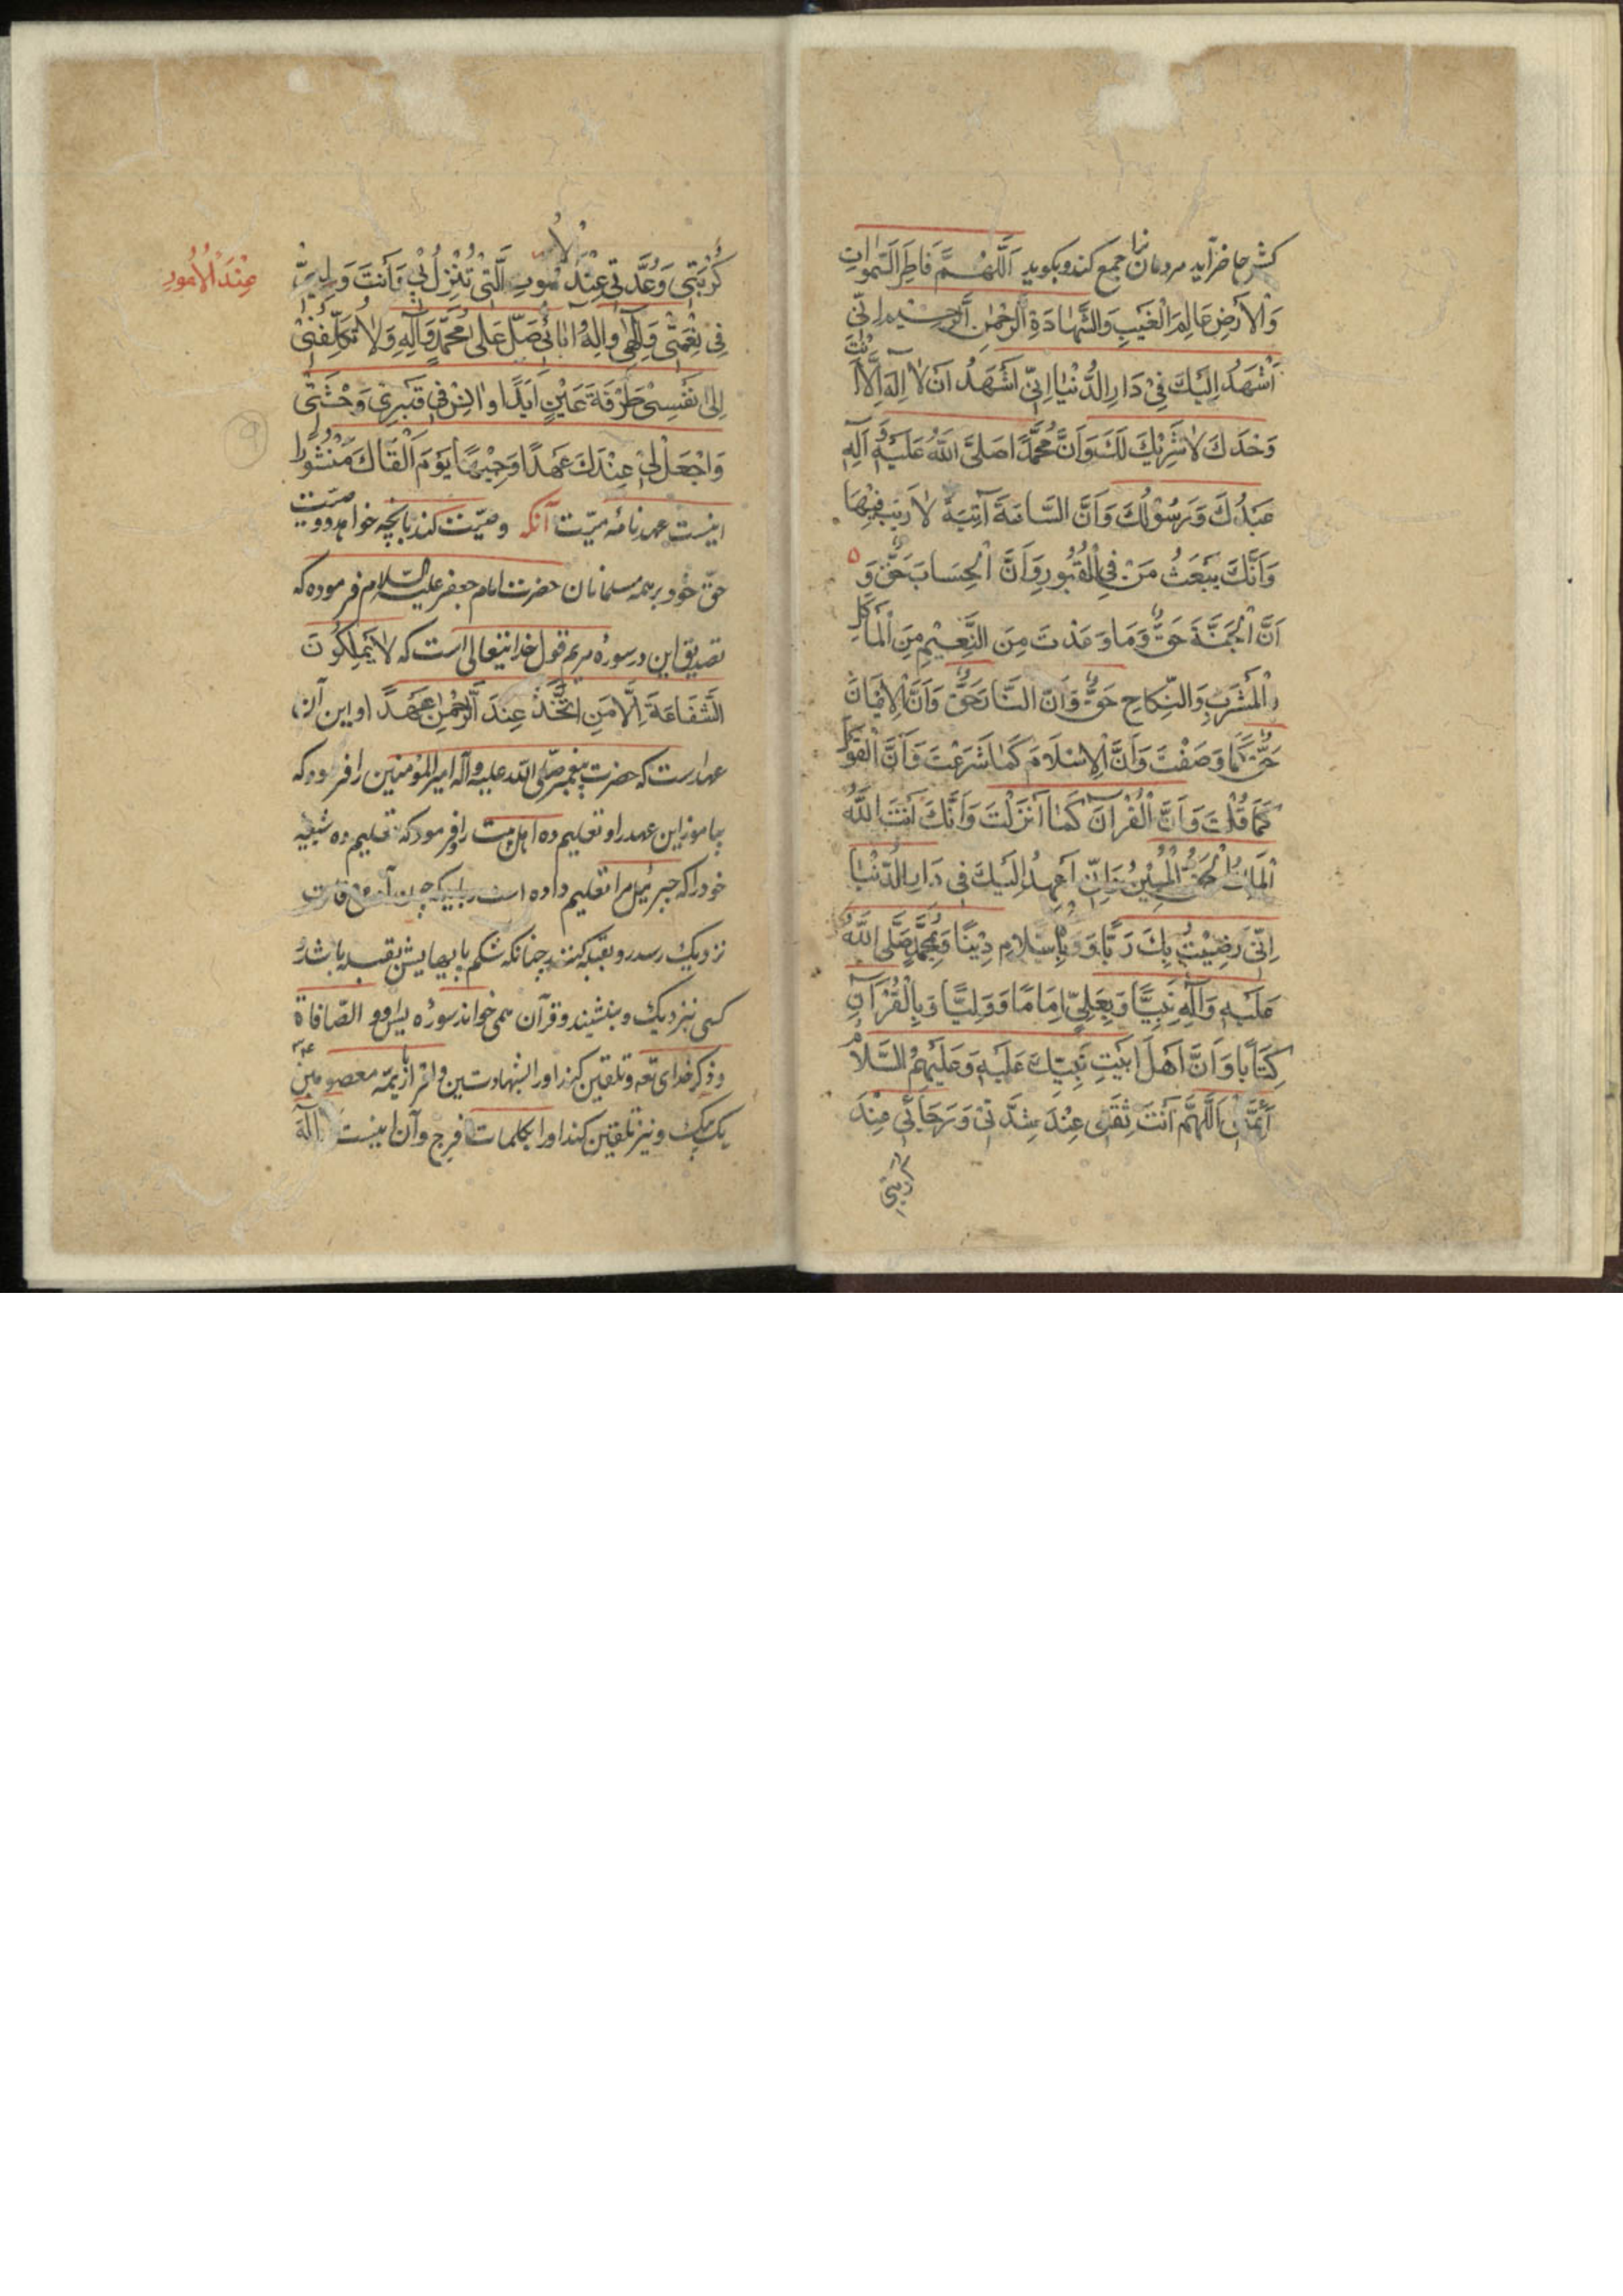 كش حاضر آید مردمان را جمع کند و بکوید اَللّٰهُمَّ فَاطِرَ السَّمٰوَاتِ
وَالْاَرْضِ عَالِمَ الْغَيْبِ وَالشَّهَادَةِ الرَّحْمٰنَ الرَّحِيْمَ اِنّيْ
اَشْهَدُ اِلَيْكَ فِيْ دَارِ الدُّنْيَا اِنّيْ اَشْهَدُ اَنْ لَا اِلٰهَ اِلَّا اَنْتَ
وَحْدَكَ لَا شَرِيْكَ لَكَ وَاَنَّ مُحَمَّدًا صَلَّى اللّٰهُ عَلَيْهِ وَ اٰلِهِ
عَبْدُكَ وَرَسُوْلُكَ وَاَنَّ السَّاعَةَ آتِيَةٌ لَا رَيْبَ فِيْهَا
وَاَنَّكَ يَبْعَثُ مَنْ فِي الْقُبُوْرِ وَاَنَّ الْحِسَابَ حَقٌّ وَ
اَنَّ الْجَنَّةَ حَقٌّ وَمَا وَعَدْتَ مِنَ النَّعِيْمِ مِنَ الْمَاْكَلِ
وَالْمَشْرَبِ وَالنِّكَاحِ حَقٌّ وَاَنَّ النَّارَ حَقٌّ وَاَنَّ الْاِيْمَانَ
حَقٌّ كَمَا وَصَفْتَ وَاَنَّ الْاِسْلَامَ كَمَا شَرَعْتَ وَاَنَّ الْقَوْلَ
كَمَا قُلْتَ وَاَنَّ الْقُرْآنَ كَمَا اَنْزَلْتَ وَاَنَّكَ اَنْتَ اللّٰهُ
الْمَلِكُ الْحَقُّ الْمُبِيْنُ وَاِنّيْ اَعْهَدُ اِلَيْكَ فِي دَارِ الدُّنْيَا
اِنّيْ رَضِيْتُ بِكَ رَبًّا وَ وَبِالْاِسْلَامِ دِيْنًا وَبِمُحَمَّدٍ صَلَّى اللّٰهُ
عَلَيْهِ وَآلِهِ نَبِيًّا وَبِعَلِيٍّ اِمَامًا وَ وَلِيًّا وَبِالْقُرْآنِ
كِتَابًا وَاَنَّ اَهْلَ بَيْتِ نَبِيِّكَ عَلَيْهِ وَعَلَيْهِمُ السَّلَامُ
اَئِمَّتِيْ اَللّٰهُمَّ اَنْتَ ثِقَتِيْ عِنْدَ شِدَّتِيْ وَرَجَائِيْ عِنْدَ
كُرْبَتِيْ
كُرْبَتِيْ وَعُدَّتِي عِنْدَ الْاُمُوْرِ الَّتِيْ تُنْزِلُ بِيْ فَاَنْتَ وَلِيِّيْ
عِنْدَ الْاُمُورِ
فِيْ نِعْمَتِيْ وَاِلٰهِيْ وَاِلٰهُ اٰبَائِيْ صَلِّ عَلٰى مُحَمَّدٍ وَآلِهِ وَلَا تَكِلْفُنِيْ
اِلٰى نَفْسِيْ طَرْفَةَ عَيْنٍ اَبَدًا وَاٰنِسْ فِي قَبْرِيْ وَحْشَتِيْ
وَاجْعَلْ لِيْ عِنْدَكَ عَهْدًا وَجِيْهًا يَوْمَ اَلْقَاكَ مَنْشُوْرًا
۹
اینست عهد نامهٔ میّت آنکه وصیّت کند بانچه خواهد و وصیّت
حقّ خود بر همه مسلمانان حضرت امام جعفر علیه السّلام فرموده که
تصدیق این در سورهٔ مریم قول خدایتعالی است که لَا يَمْلِكُوْنَ
الشَّفَاعَةَ اِلَّا مَنِ اتَّخَذَ عِنْدَ الرَّحْمٰنِ عَهْدًا و این آن
عهد است که حضرت پیغمبر صلّی اللّه علیه و آله امیر المؤمنین را فرمود که
بیاموز این عهد را و تعلیم ده اهل بیت را و فرمود که تعلیم ده شیعهٔ
خود را که جبرئیل مرا تعلیم داده است
نزدیک رسد رو بقبله کنند چنانکه شکم پایهایش بقبله باشد و
کسی بنزدیک و بنشیند و قرآن همی خواند سورهٔ یس و و الصّافاة
و ذکر خدای تعه و تلقین کند او را بشهادتین و اقرار بائمّه معصومین
یک یک و نیز تلقین کند او را بکلمات فرج و آن اینست لَا اِلٰهَ